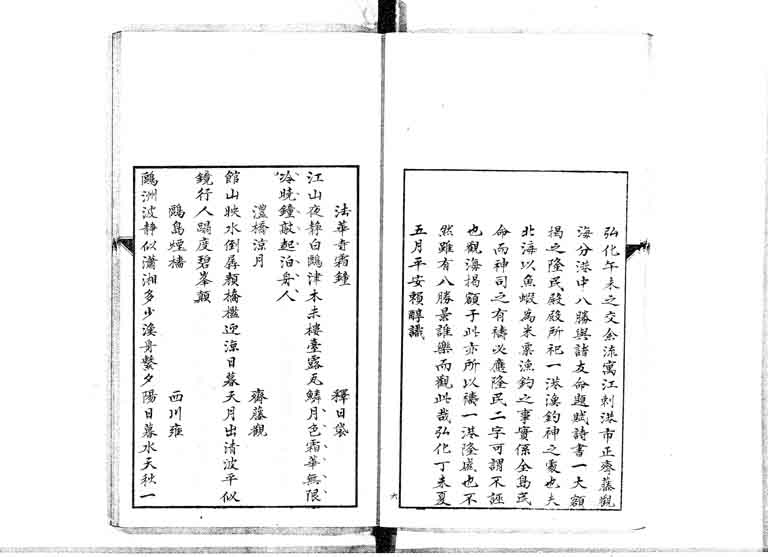 弘化午未之交余流寓江刺港市正齋藤觀
海分港中八勝與諸友命題賦詩書一大額
揭之隆民殿殿所祀一港漁釣神之靈也夫
北海以魚蝦爲米粟漁釣之事實係全島民
命而神司之有禱必應隆民二字可謂不誣
也觀海揭額于此亦所以禱一港隆盛也不
然雖有八勝景誰樂而觀此哉弘化丁未夏
五月平安賴醇識
六
法華寺霜鐘 釋日袋
江山夜靜白鷗津木末樓臺露瓦鱗月色霜華無限
冷曉鐘敲起泊舟人
澧橋涼月 齋藤觀
館山映水倒孱顏橋檻迎涼日暮天月出清波平似
鏡行人蹋度碧峯巔
鷗島煙檣 西川雍
鷗洲波靜似瀟湘多少漁舟繫夕陽日暮水天秋一